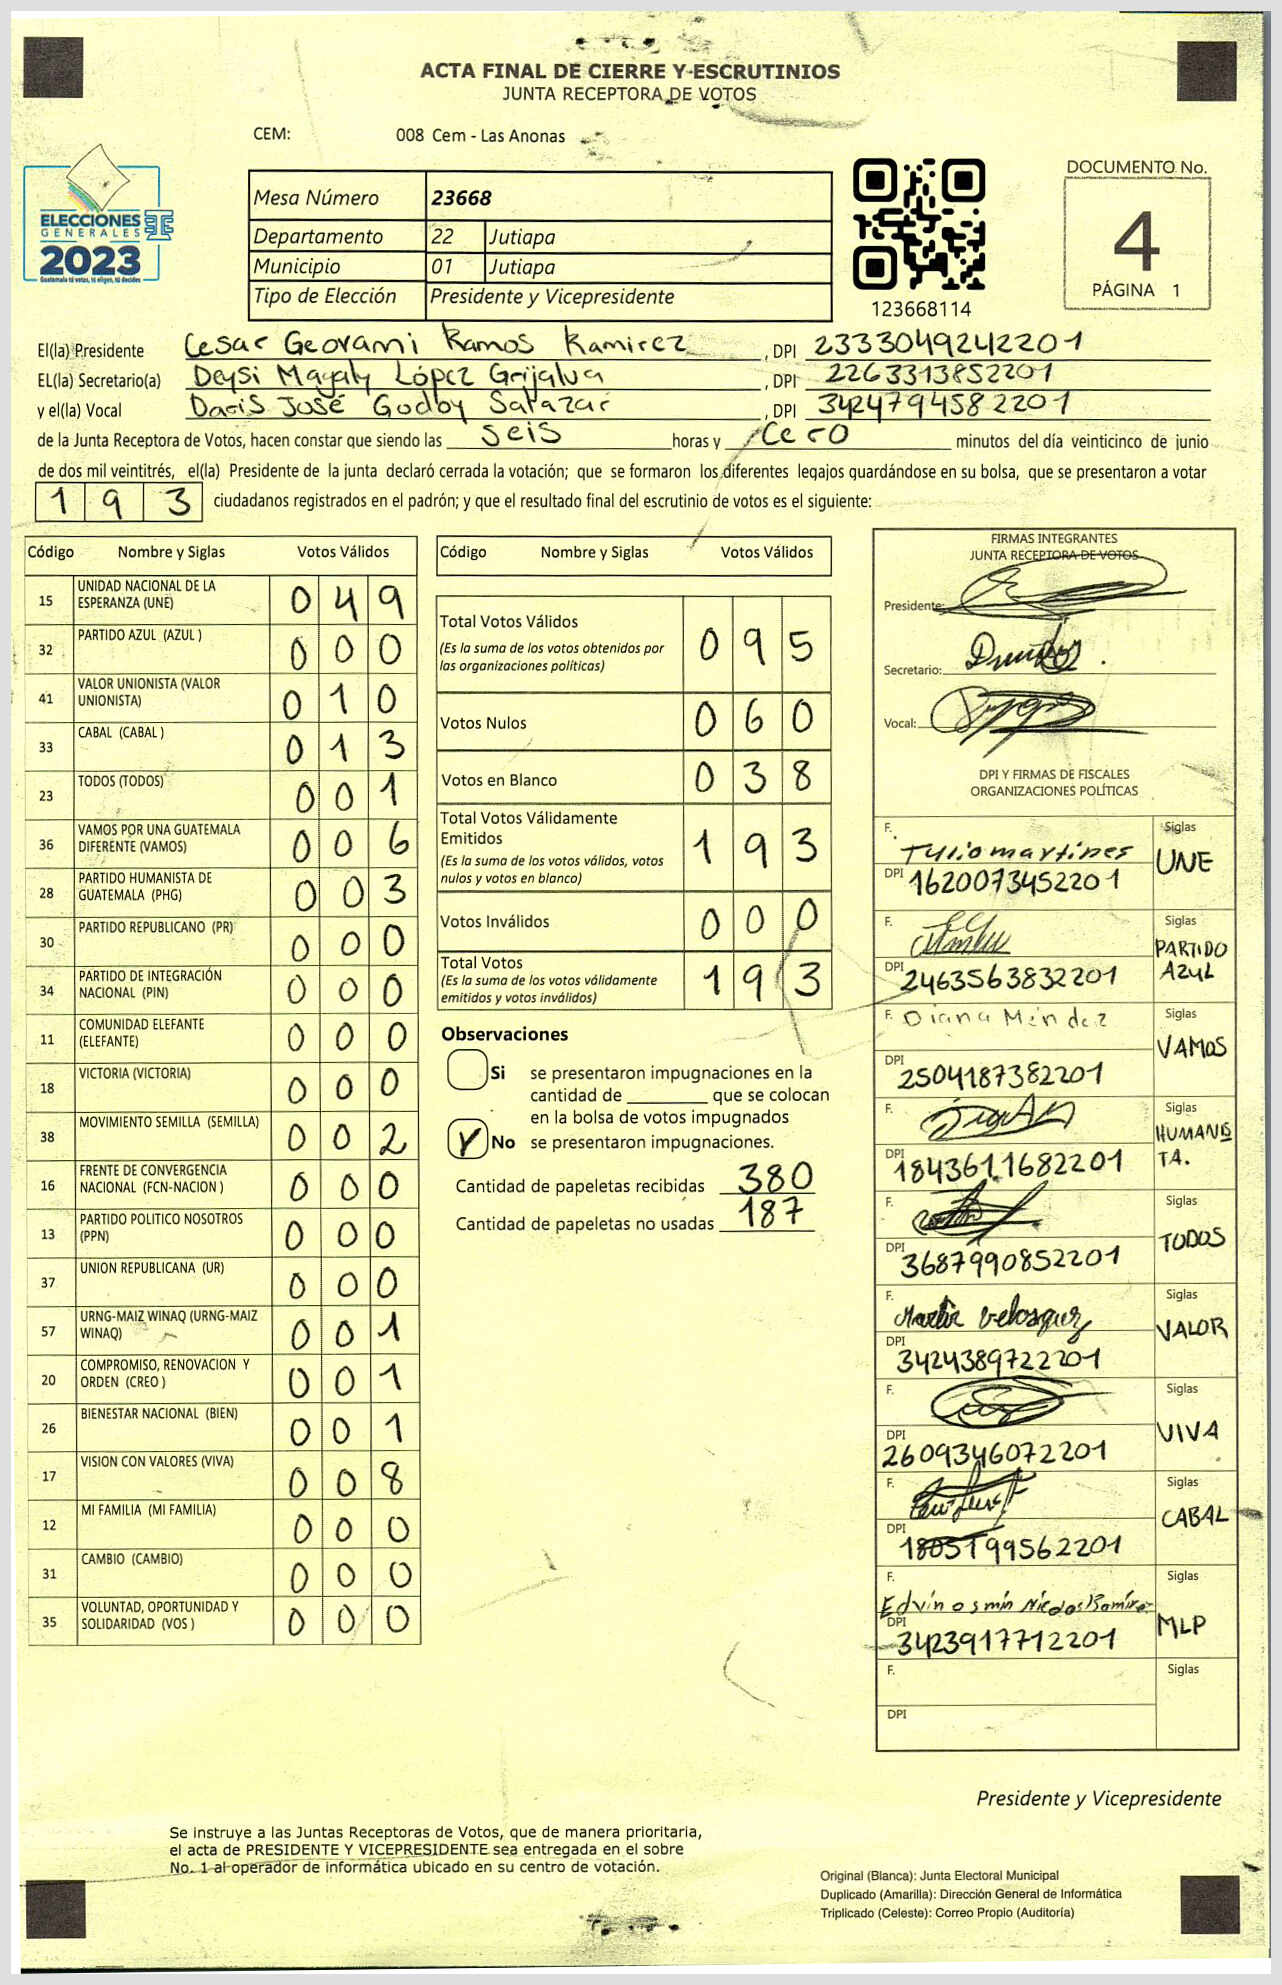 ACTA FINAL DE CIERRE Y ESCRUTINIOS
JUNTA RECEPTORA DE VOTOS
CEM: 008 Cem - Las Anonas
ELECCIONES
GENERALES
2023
Guatemala tú votas, tú eliges, tú decides
Mesa Número 23668
Departamento 22 Jutiapa
Municipio 01 Jutiapa
Tipo de Elección Presidente y Vicepresidente
123668114
DOCUMENTO No.
4
PÁGINA 1
El(la) Presidente Cesar Geovami Ramos Ramirez, DPI 2333049242201
EL(la) Secretario(a) Deysi Magaly López Grijalva, DPI 2263313852201
y el(la) Vocal Daris José Godoy Salazar, DPI 3424794582201
de la Junta Receptora de Votos, hacen constar que siendo las seis horas y cero minutos del día veinticinco de junio
de dos mil veintitrés, el(la) Presidente de la junta declaró cerrada la votación; que se formaron los diferentes legajos guardándose en su bolsa, que se presentaron a votar
193 ciudadanos registrados en el padrón; y que el resultado final del escrutinio de votos es el siguiente:
Código Nombre y Siglas Votos Válidos
15 UNIDAD NACIONAL DE LA ESPERANZA (UNE) 049
32 PARTIDO AZUL (AZUL ) 000
41 VALOR UNIONISTA (VALOR UNIONISTA) 010
33 CABAL (CABAL ) 013
23 TODOS (TODOS) 001
36 VAMOS POR UNA GUATEMALA DIFERENTE (VAMOS) 006
28 PARTIDO HUMANISTA DE GUATEMALA (PHG) 003
30 PARTIDO REPUBLICANO (PR) 000
34 PARTIDO DE INTEGRACIÓN NACIONAL (PIN) 000
11 COMUNIDAD ELEFANTE (ELEFANTE) 000
18 VICTORIA (VICTORIA) 000
38 MOVIMIENTO SEMILLA (SEMILLA) 002
16 FRENTE DE CONVERGENCIA NACIONAL (FCN-NACION ) 000
13 PARTIDO POLITICO NOSOTROS (PPN) 000
37 UNION REPUBLICANA (UR) 000
57 URNG-MAIZ WINAQ (URNG-MAIZ WINAQ) 001
20 COMPROMISO, RENOVACION Y ORDEN (CREO ) 001
26 BIENESTAR NACIONAL (BIEN) 001
17 VISION CON VALORES (VIVA) 008
12 MI FAMILIA (MI FAMILIA) 000
31 CAMBIO (CAMBIO) 000
35 VOLUNTAD, OPORTUNIDAD Y SOLIDARIDAD (VOS ) 000
Código Nombre y Siglas Votos Válidos
Total Votos Válidos 095
(Es la suma de los votos obtenidos por
las organizaciones políticas)
Votos Nulos 060
Votos en Blanco 038
Total Votos Válidamente
Emitidos 193
(Es la suma de los votos válidos, votos
nulos y votos en blanco)
Votos Inválidos 000
Total Votos 193
(Es la suma de los votos válidamente
emitidos y votos inválidos)
Observaciones
Si se presentaron impugnaciones en la
cantidad de ________ que se colocan
en la bolsa de votos impugnados
No se presentaron impugnaciones.
Cantidad de papeletas recibidas 380
Cantidad de papeletas no usadas 187
FIRMAS INTEGRANTES
JUNTA RECEPTORA DE VOTOS
Presidente:
Secretario:
Vocal:
DPI Y FIRMAS DE FISCALES
ORGANIZACIONES POLÍTICAS
F. Tulio martines Siglas
DPI 1620073452201 UNE
F. Siglas
DPI 2463563832201 PARTIDO AZUL
F. Diana Méndez Siglas
DPI 2504187382201 VAMOS
F. Siglas
DPI 1843611682201 HUMANISTA.
F. Siglas
DPI 3687990852201 TODOS
F. Velasquez Siglas
DPI 3424389722201 VALOR
F. Siglas
DPI 2609346072201 VIVA
F. Siglas
DPI 1805199562201 CABAL
F. Edvin osmin Nicolas Ramirez Siglas
DPI 3423917712201 MLP
F. Siglas
DPI
Presidente y Vicepresidente
Se instruye a las Juntas Receptoras de Votos, que de manera prioritaria,
el acta de PRESIDENTE Y VICEPRESIDENTE sea entregada en el sobre
No. 1 al operador de informática ubicado en su centro de votación.
Original (Blanca): Junta Electoral Municipal
Duplicado (Amarilla): Dirección General de Informática
Triplicado (Celeste): Correo Propio (Auditoría)